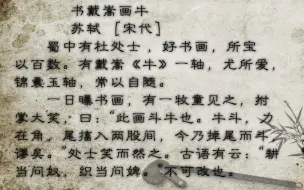 书戴嵩画牛
苏轼 [宋代]
蜀中有杜处士，好书画，所宝
以百数。有戴嵩《牛》一轴，尤所爱，
锦囊玉轴，常以自随。
一日曝书画，有一牧童见之，拊
掌大笑，曰：“此画斗牛也。牛斗，力
在角，尾搐入两股间，今乃掉尾而斗，
谬矣。”处士笑而然之。古语有云：“耕
当问奴，织当问婢。”不可改也。